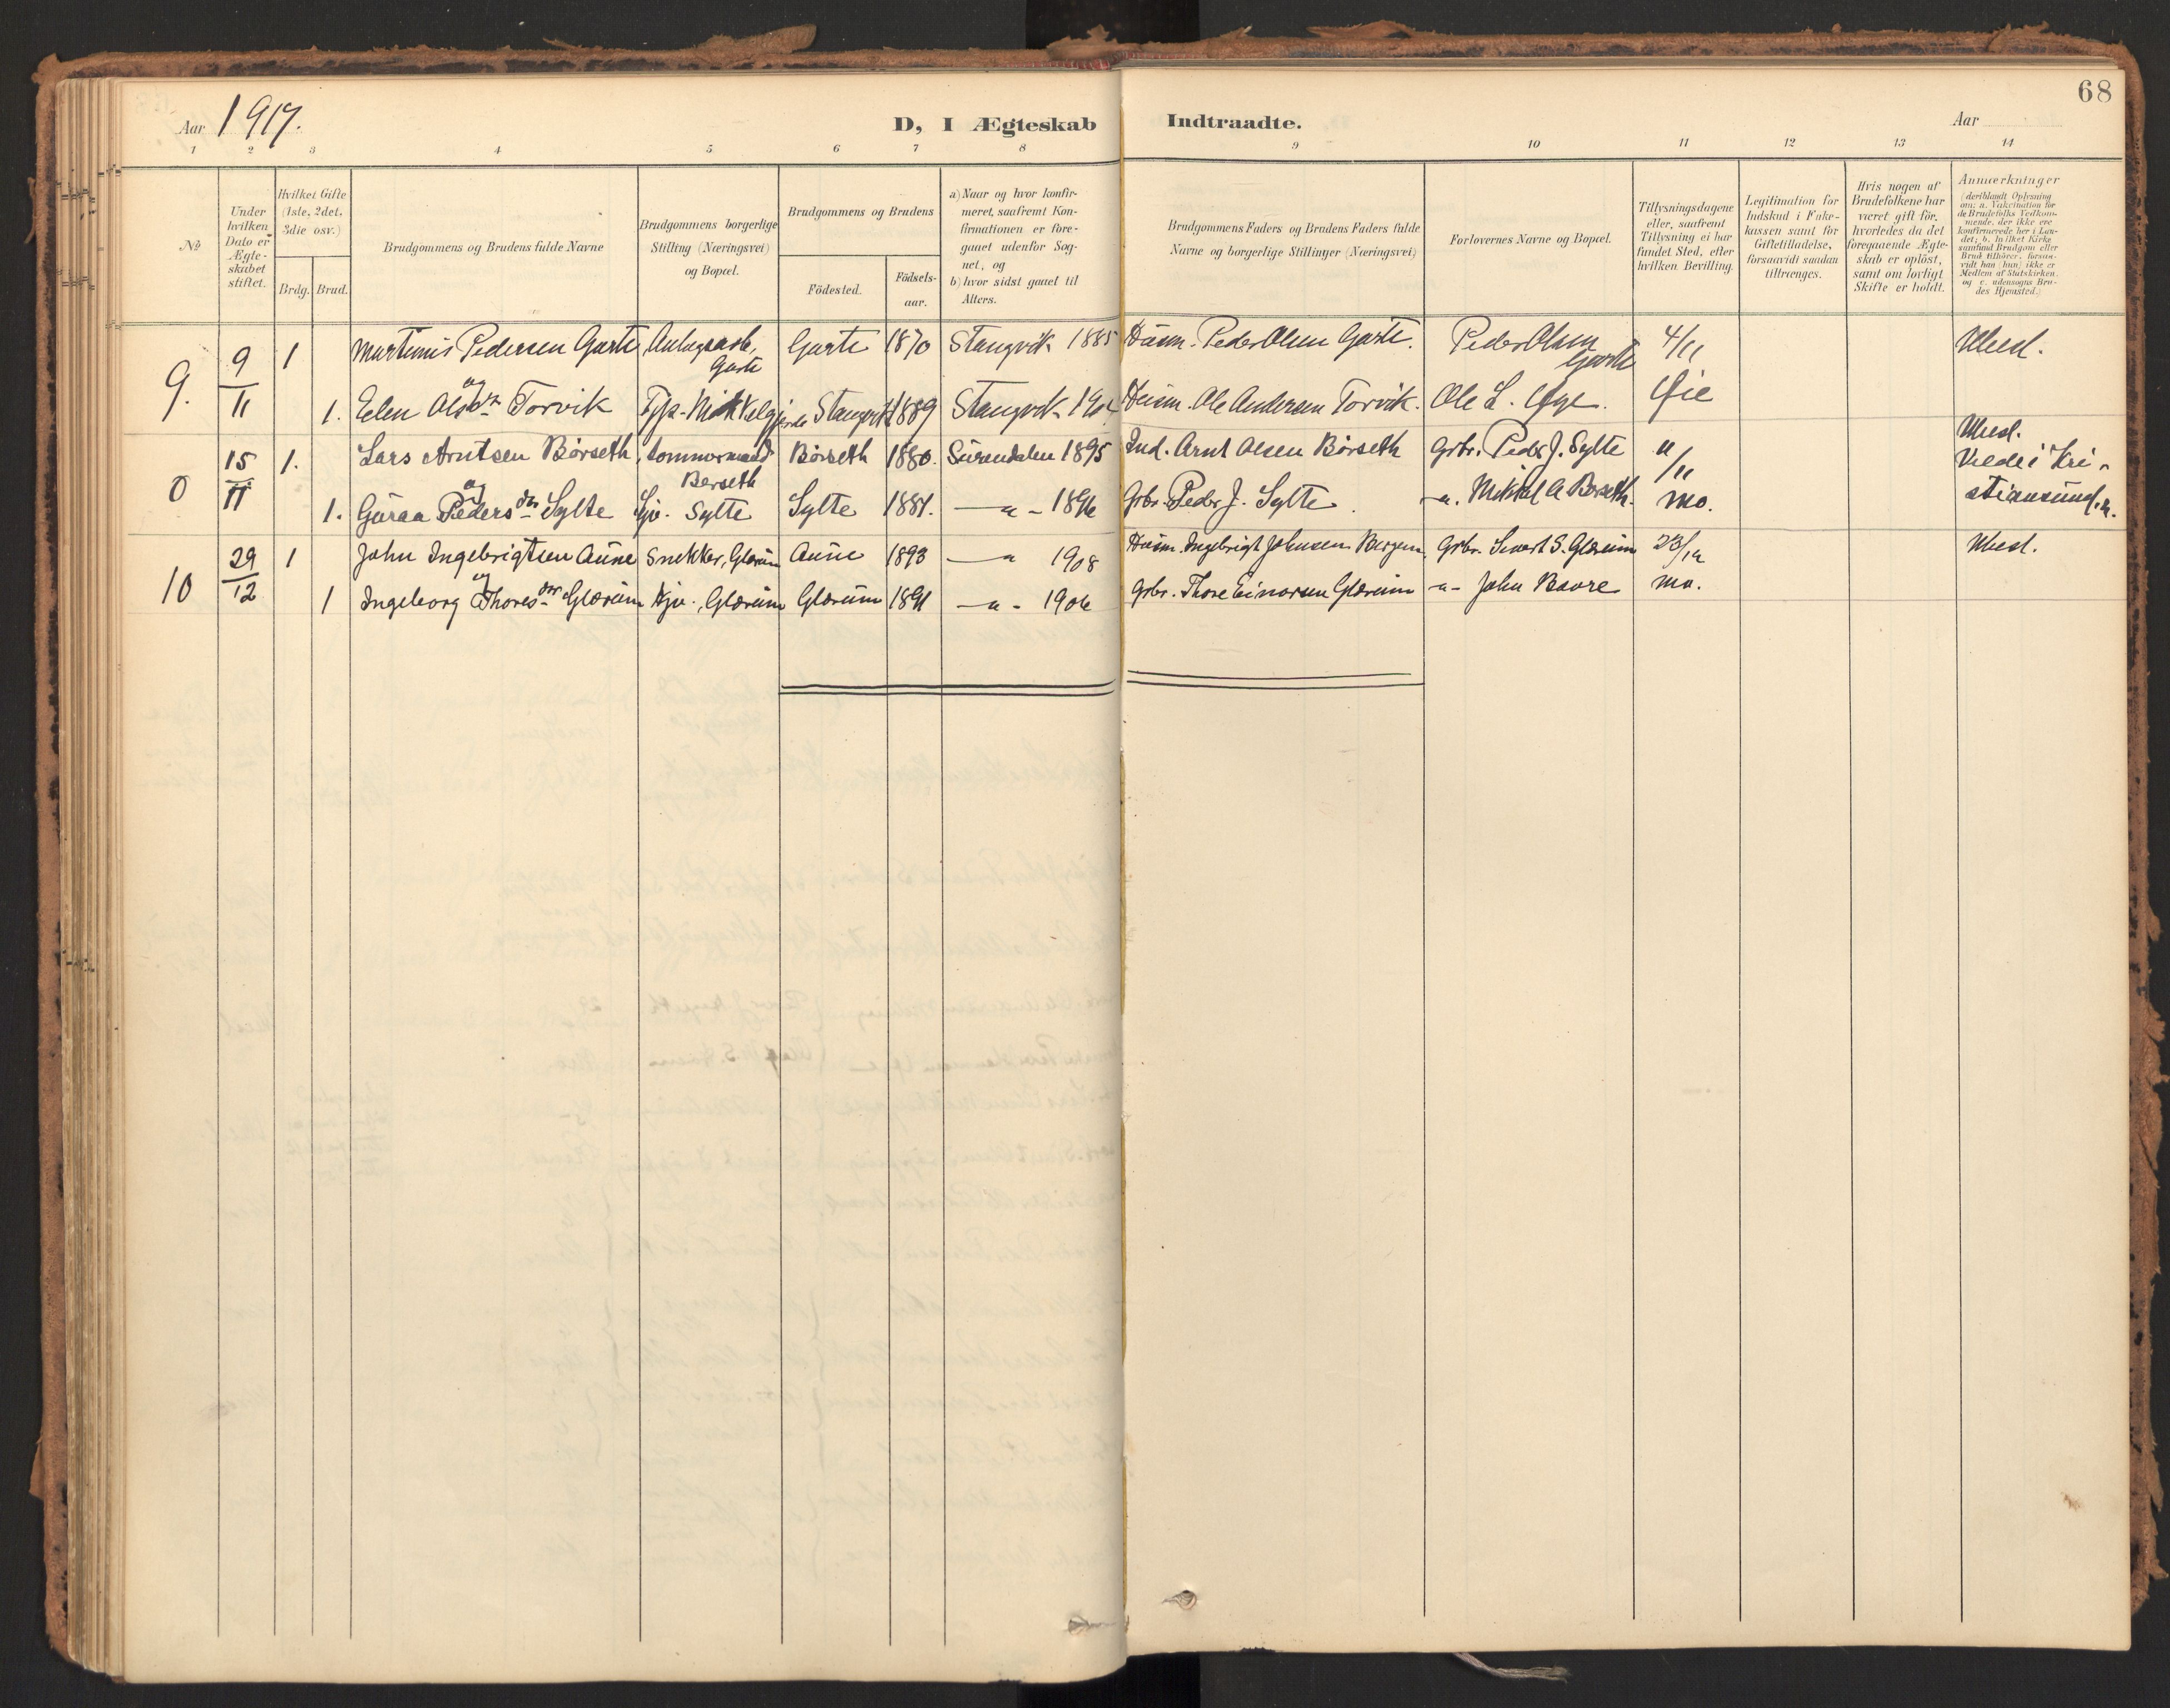 68
Aar 1917.
D, I Ægteskab Indtraadte.
Aar
1 2 3 4 5 6 7 8 9 10 11 12 13 14
No
Under hvilken Dato er Ægteskabet stiftet.
Hvilket Gifte (1ste, 2det, 3die osv.)
Brdg. Brud.
Brudgommens og Brudens fulde Navne
Brudgommens borgerlige Stilling (Næringsvei) og Bopæl.
Brudgommens og Brudens
Födested.
Födsels-aar.
a) Naar og hvor konfirmeret, saafremt Konfirmationen er foregaaet udenfor Sognet, og
b) hvor sidst gaaet til Alters.
Brudgommens Faders og Brudens Faders fulde Navne og borgerlige Stillinger (Næringsvei)
Forlovernes Navne og Bopæl.
Tillysningsdagene eller, saafremt Tillysning ei har fundet Sted, efter hvilken Bevilling.
Legitimation for Indskud i Enkekassen samt for Giftetilladelse, forsaavidt saadan tiltrænges.
Hvis nogen af Brudefolkene har været gift før, hvorledes da det foregaaende Ægteskab er oplöst, samt om lovligt Skifte er holdt.
Anmærkninger (deriblandt Oplysning om: a. Vakcination for de Brudefolks Vedkommende, der ikke ere konfirmerede her i Landet; b. hvilket Kirkesamfund Brudgom eller Brud tilhörer, forsaavidt han (hun) ikke er Medlem af Statskirken og c. udensogns Brudes Hjemsted.)
9. 9/11 1 Martinus Pedersen Garte Garte Garte 1870 Stangvik 1885 Husm. Peder Olsen Garte. Peder Olsen Garte 4/11
og
1. Elen Olsdtr Torvik Stangvik 1889 Stangvik Husm. Ole Andersen Torvik. Ole L. Øye. Øie
0 15/11 1. Lars Arntsen Børseth, tommermand Berseth Børseth 1880. Surendalen 1895 Ind. Arnt Olsen Børseth Grbr. Peder J. Sylte 11/11
Viede i Kristiansund.n.
og
1. Guraa Pedersdtr Sylte Sylte Sylte 1881. —"— 1896 Grbr. Peder J. Sylte. -"- Mikkel A Børseth. Mo.
10 29/12 1 John Ingebrigtsen Aune Snekker, Glærum Aune 1893 —"— 1908 Husm. Ingebrigt Johnsen Bergem Grbr. Sivert S. Glærum 23/12
og
1 Ingeborg Thoresdtr Glærum Glærum Glærum 1891 —"— 1906 Grbr. Thore Einarsen Glærum -"- John Bævre Mo.